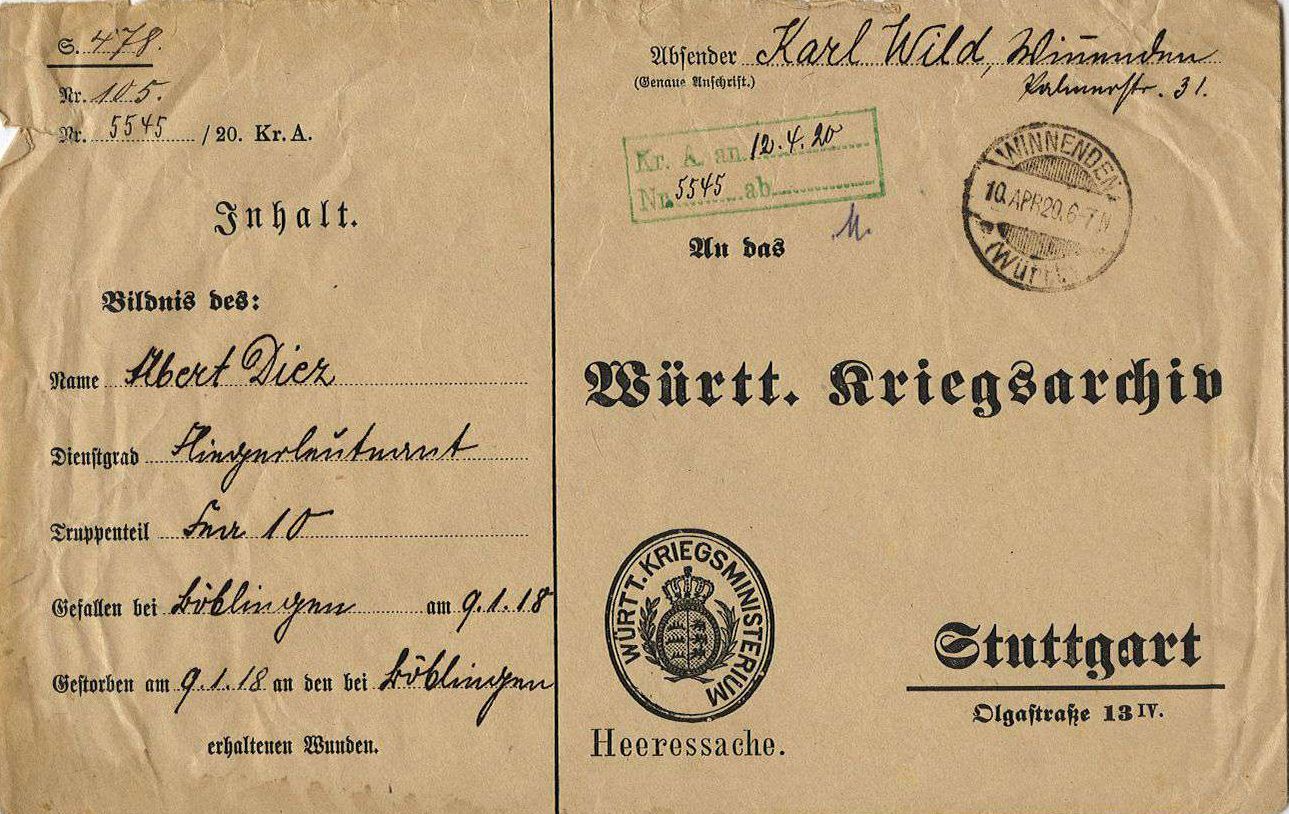 S. 478.
Nr. 105.
Nr. 5545 / 20. Kr. A.
Inhalt.
Bildnis des:
Name Albert Diez
Dienstgrad Fliegerleutnant
Truppenteil Fea 10
Gefallen bei Böblingen am 9.1.18
Gestorben am 9.1.18 an den bei Böblingen
erhaltenen Wunden.
Absender Karl Wild, Winnenden
(Genaue Anschrift.) Palmerstr. 31.
Kr. A. an 12.4.20
Nr. 5545 ab
WINNENDEN
10.APR20.6-7N
(Württ.)
An das
Württ. Kriegsarchiv
WÜRTT. KRIEGSMINISTERIUM
Stuttgart
Olgastraße 13 IV.
Heeressache.